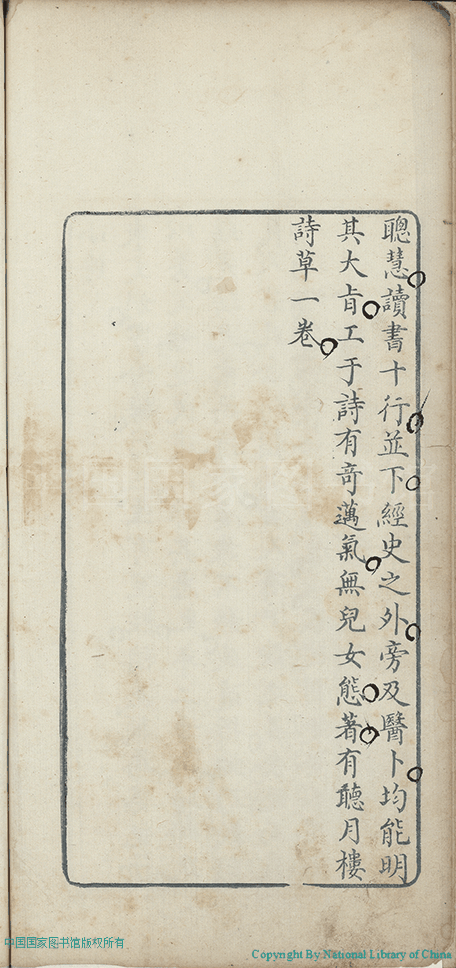 聰慧讀書十行並下經史之外旁及醫卜均能明
其大肯工于詩有奇邁氣無兒女態著有聽月樓
詩草一卷
中国国家图书馆
中国国家图书馆版权所有
Copyright By National Library of China